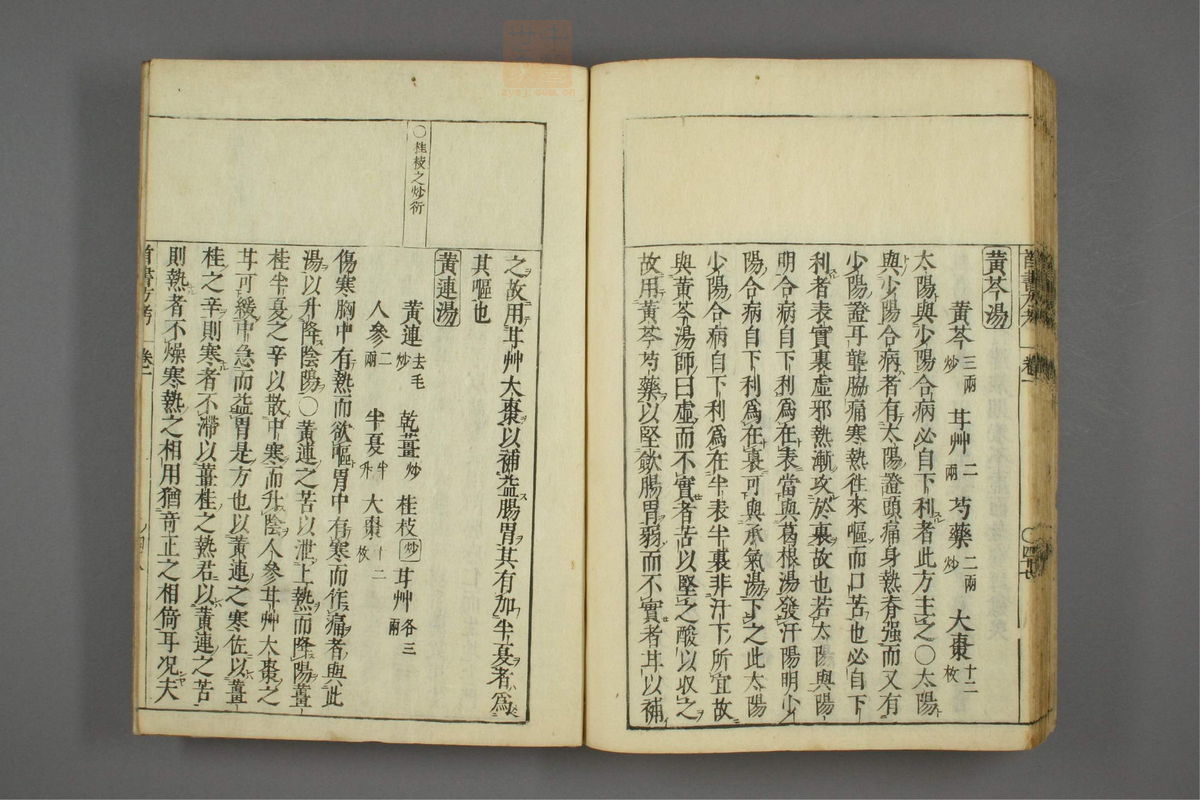 黃芩湯
黃芩三兩炒 甘艸二兩 芍藥二兩炒 大棗十二枚
太陽與少陽合病必自下利者此方主之○太陽
與少陽合病者有太陽證頭痛身熱脊强而又有
少陽證耳聾脇痛寒熱徃來嘔而口苦也必自下
利者表實裏虛邪熱漸攻於裏故也若太陽與陽
明合病自下利爲在表當與葛根湯發汗陽明少
陽合病自下利爲在裏可與承氣湯下之此太陽
少陽合病自下利爲在半表半裏非汗下所宜故
與黃芩湯師曰虛而不實者苦以堅之酸以收之
故用黃芩芍藥以堅歛腸胃弱而不實者甘以補
之故用甘艸大棗以補益腸胃其有加半夏者爲
其嘔也
黃連湯
黃連去毛炒 乾薑炒 桂枝炒 甘艸各三兩
人參二兩 半夏半升 大棗十二枚
○桂枝之炒衍
傷寒胸中有熱而欲嘔胃中有寒而作痛者與此
湯以升降陰陽○黃連之苦以泄上熱而降陽薑
桂半夏之辛以散中寒而升陰人參甘艸大棗之
甘可緩中急而益胃是方也以黃連之寒佐以薑
桂之辛則寒者不滯以薑桂之熱君以黃連之苦
則熱者不燥寒熱之相用猶竒正之相倚耳况夫
首書方考 卷一